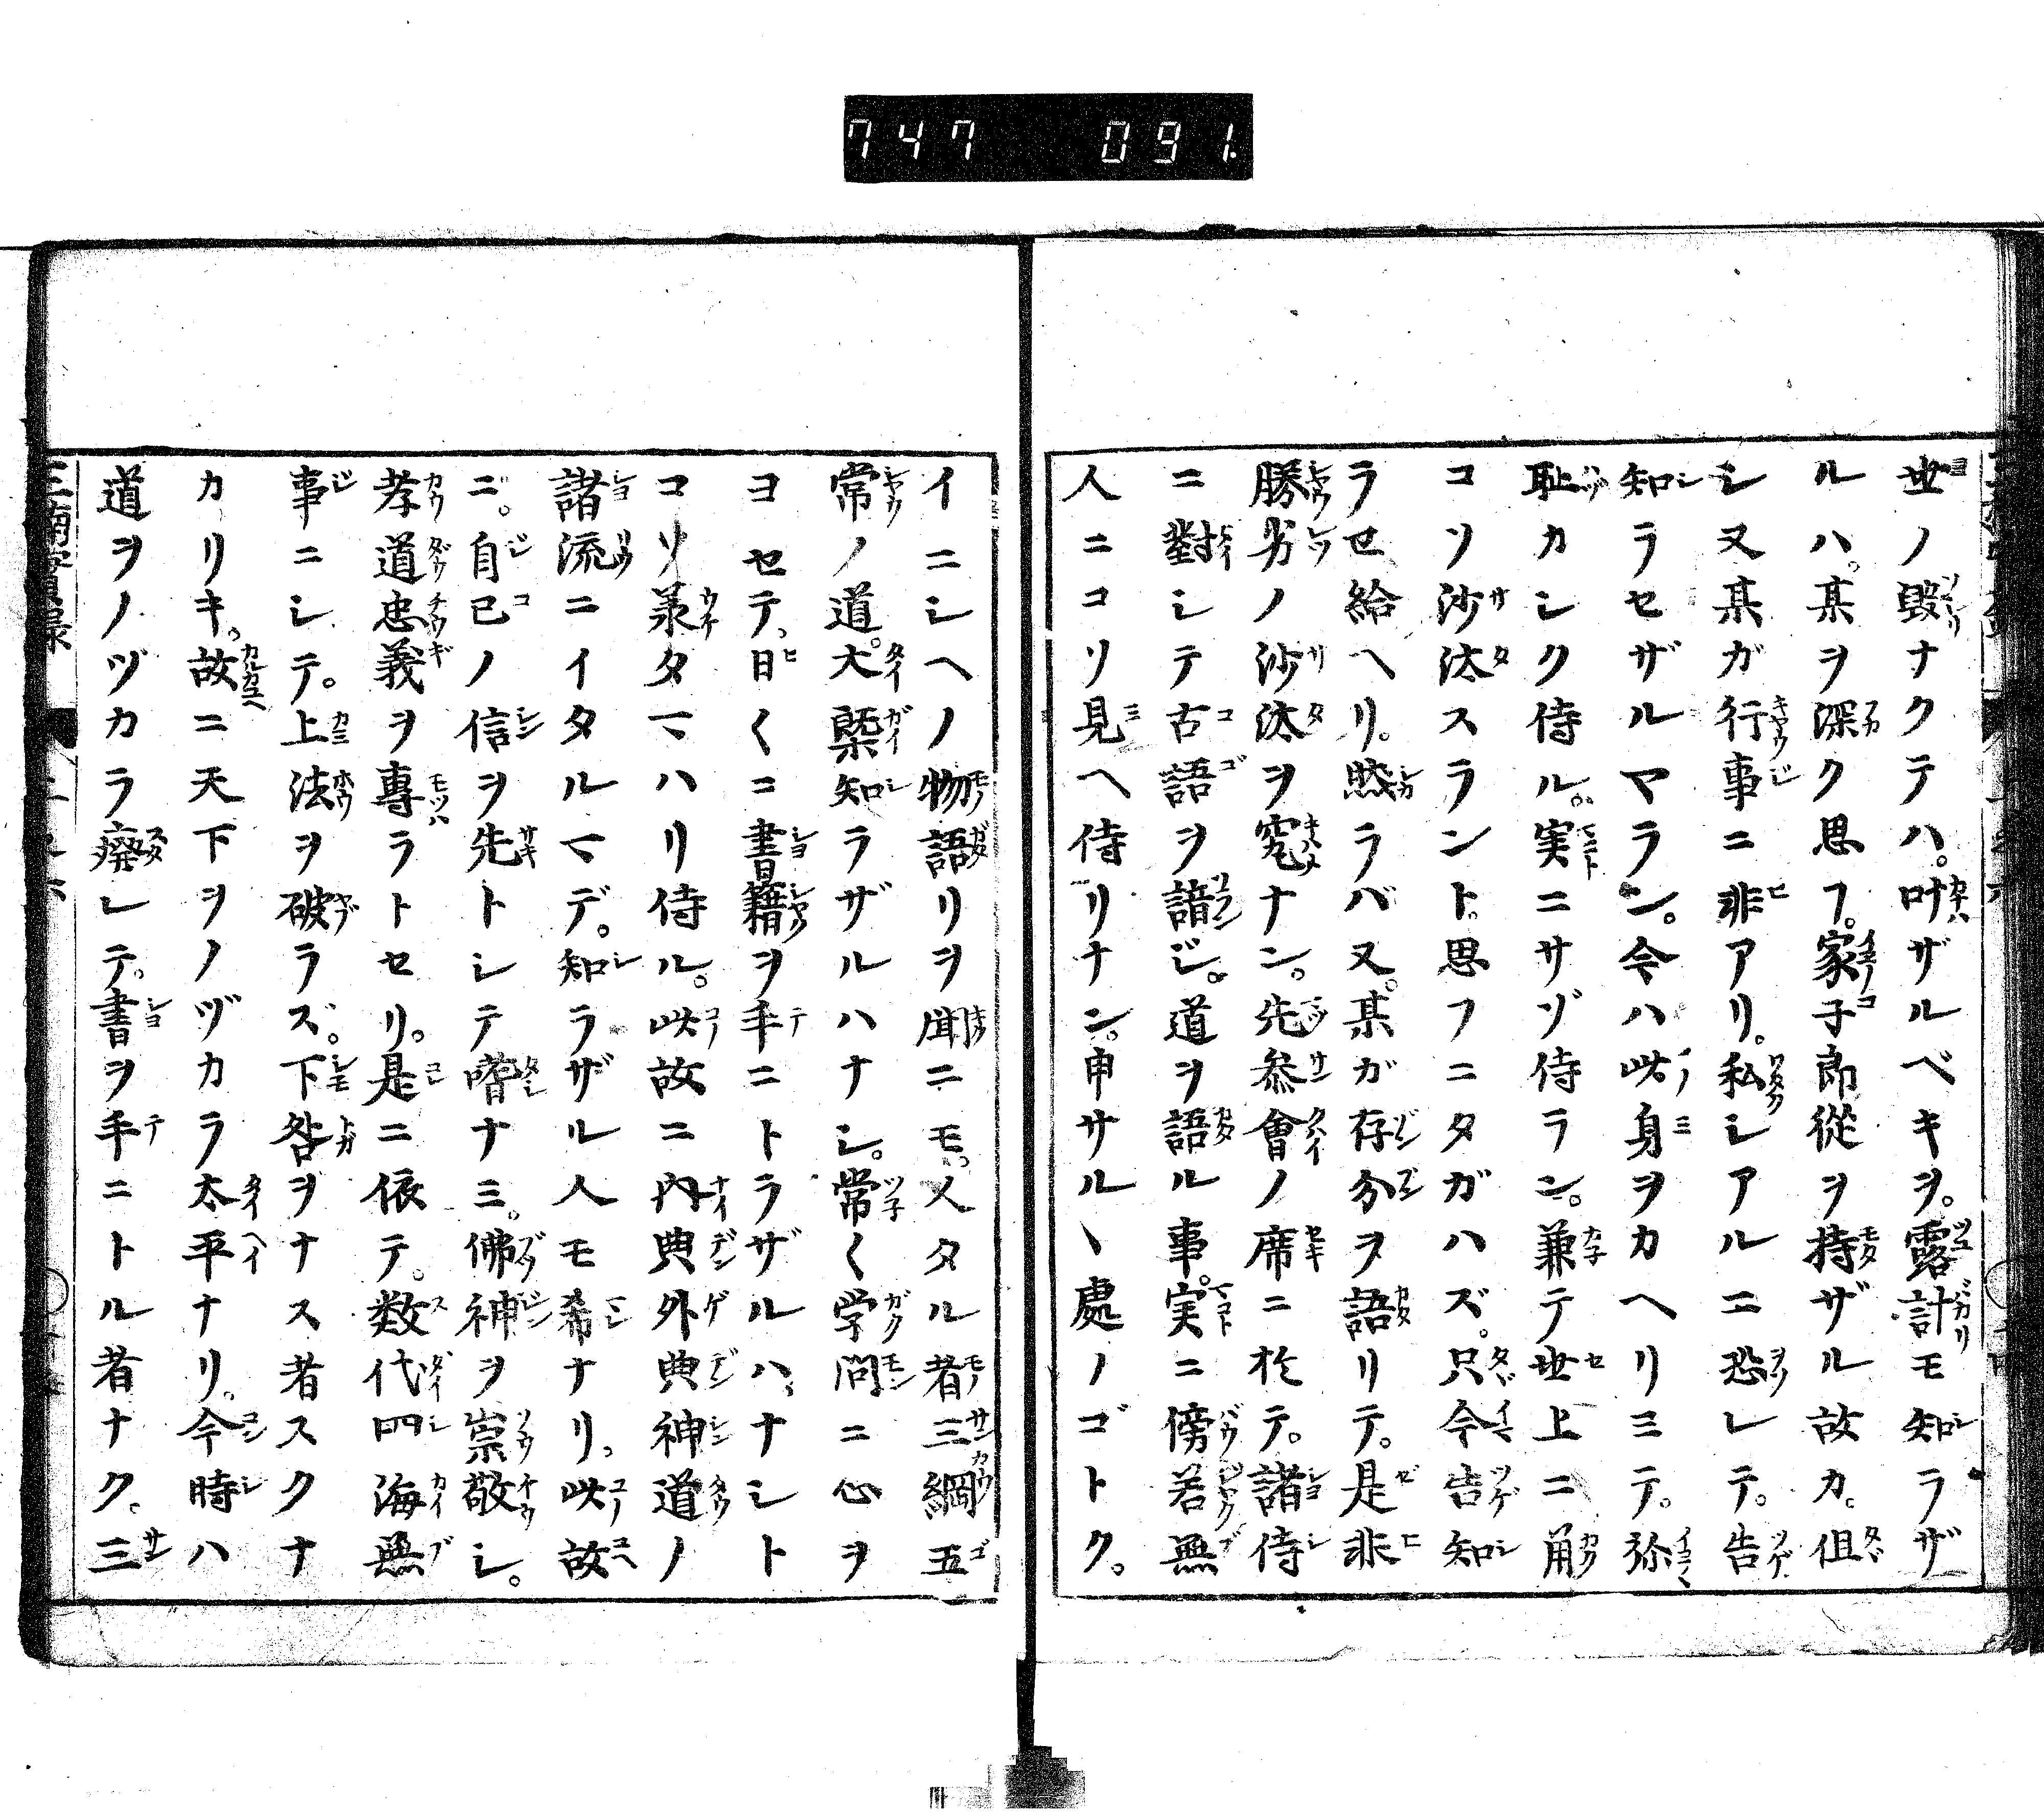 747 091.
世ノ毀ナクテハ。叶ザルベキヲ。露計モ知ラザ
ルハ。某ヲ深ク思フ。家子郎從ヲ持ザル故カ。伹
シ又某ガ行事ニ非アリ。私シアルニ恐レテ。告
知ラセザルマラン。今ハ此身ヲカヘリミテ。弥
耻カシク侍ル。実ニサゾ侍ラン。兼テ世上ニ角
コソ沙汰スラント思フニタガハズ。只今告知
ラセ給ヘリ。然ラバ又。某ガ存分ヲ語リテ。是非
勝劣ノ沙汰ヲ究ナン。先參會ノ席ニ於テ。諸侍
ニ對シテ古語ヲ諳ジ。道ヲ語ル事。実ニ傍若無
人ニコリ見ヘ侍リナン。申サルヽ處ノゴトク。
イニシヘノ物語リヲ聞ニモ。人タル者三綱五
常ノ道。大槩知ラザルハナシ。常く学問ニ心ヲ
ヨセテ。日くニ書籍ヲ手ニトラザルハ。ナシト
コソ承タマハリ侍ル。此故ニ内典外典神道ノ
諸流ニイタルマデ。知ラザル人モ希ナリ。此故
ニ。自己ノ信ヲ先トシテ嗜ナミ。佛神ヲ崇敬シ。
孝道忠義ヲ專ラトセリ。是ニ依テ。数代四海無
事ニシテ。上法ヲ破ラズ。下咎ヲナス者スクナ
カリキ。故ニ天下ヲノヅカラ太平ナリ。今時ハ
道ヲノヅカラ廢レテ。書ヲ手ニトル者ナク。三